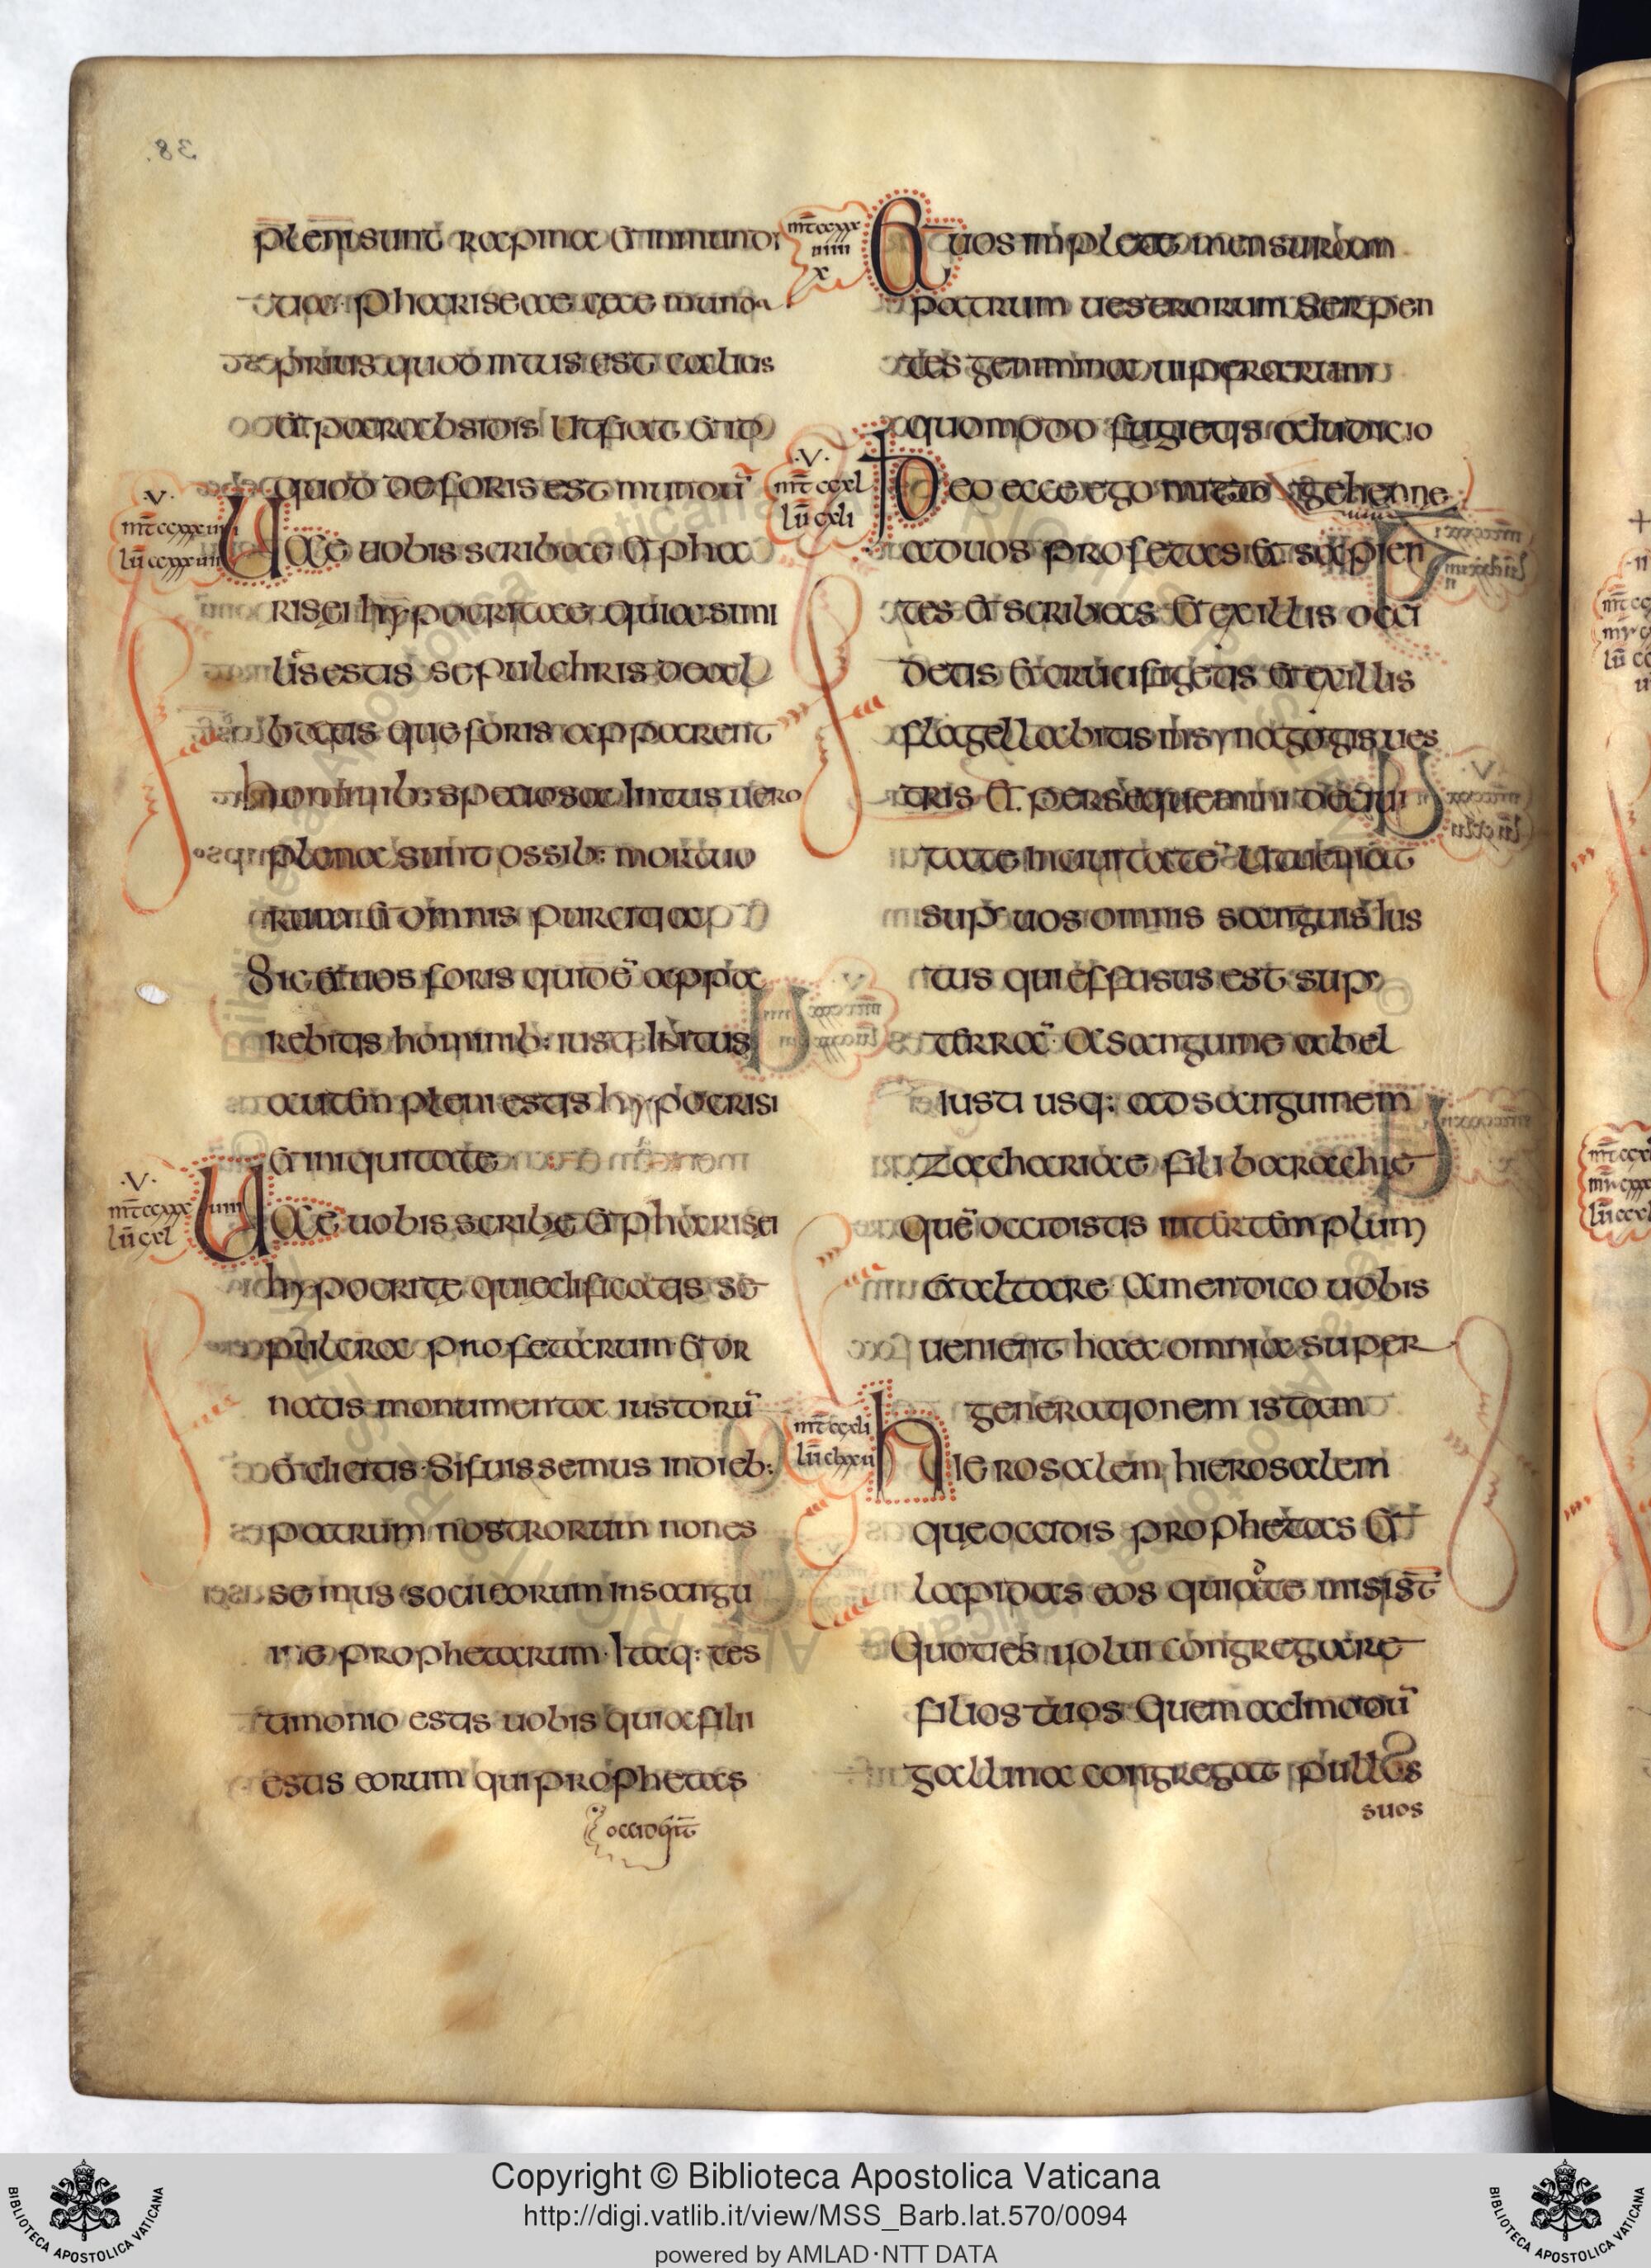 pleni sunt rapina et inmundi
tia pharisaeae caece munda
prius quod intus est calius
et parabsidis ut fiat et id
quod deforis est mundū
·v·
mt̄ ccxxxuiii
lū cxxxuiii
Uae uobis scribae et pha
risei hypocritae quia simi
lis estis sepulchris deal
batis que foris apparent
hominib: speciosa Intus uero
plena sunt ossib: mortuo
rum et omnis purcitia
Sic et uos foris quidē appa
rebitis hominib: iusti Intus
autem pleni estis hypocrisi
et iniquitate
·v·
mt̄ ccxxxuiiii
lū cxl
Uae uobis scribe et pharisei
hypocrite qui edificatis se
pulcra profetarum et or
natis monumenta iustorū
et dicitis Si fuissemus in dieb:
patrum nostrorum non es
semus socii eorum in sangu
ine prophetarum· Itaq: tes
timonio estis uobis quia filii
estis eorum qui prophetas
occider̄t
mt̄ ccxxx
uiiii
x
Et uos impleate mensuram
patrum uestrorum Serpen
tes genimina uiperarum
quomodo fugietis a iudicio
gehenne
·v·
mt̄ ccxl
lū cxli
Ideo ecce ego mitto
ad uos profetas et sapien
tes et scribas Et ex illis occi
detis et crucifigetis et ex illis
flagellabitis in synagogis ues
tris et persequemini de ciui
tate in ciuitatē Ut ueniat
sup uos omnis sanguis ius
tus qui effusus est sup
terrā A sanguine abel
iusti usq: ad sanguinem
Zachariae fili barachie
quē occidistis inter templum
et altare Amen dico uobis
uenient haec omnia super
generationem istam
mt̄ ccxli
lū clxxii
hierosalem hierosalem
que occidis prophetas et
lapidas eos qui ad te misi st̄
Quoties uolui congregare
filios tuos Quem admodū
gallina congregat pullos
suos
38.
Copyright © Biblioteca Apostolica Vaticana
http://digi.vatlib.it/view/MSS_Barb.lat.570/0094
powered by AMLAD·NTT DATA
BIBLIOTECA APOSTOLICA VATICANA
BIBLIOTECA APOSTOLICA VATICANA